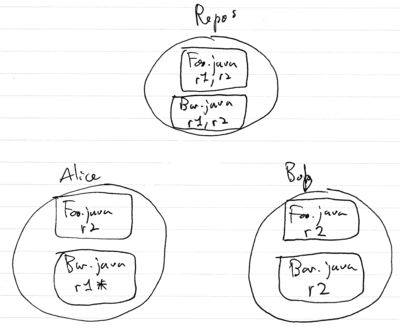 Repos
Foo.java
r1, r2
Bar.java
r1, r2
Alice
Foo.java
r2
Bar.java
r1*
Bob
Foo.java
r2
Bar.java
r2